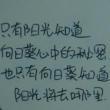 只有阳光知道
向日葵心中的秘密
也只有向日葵知道
阳光将去哪里